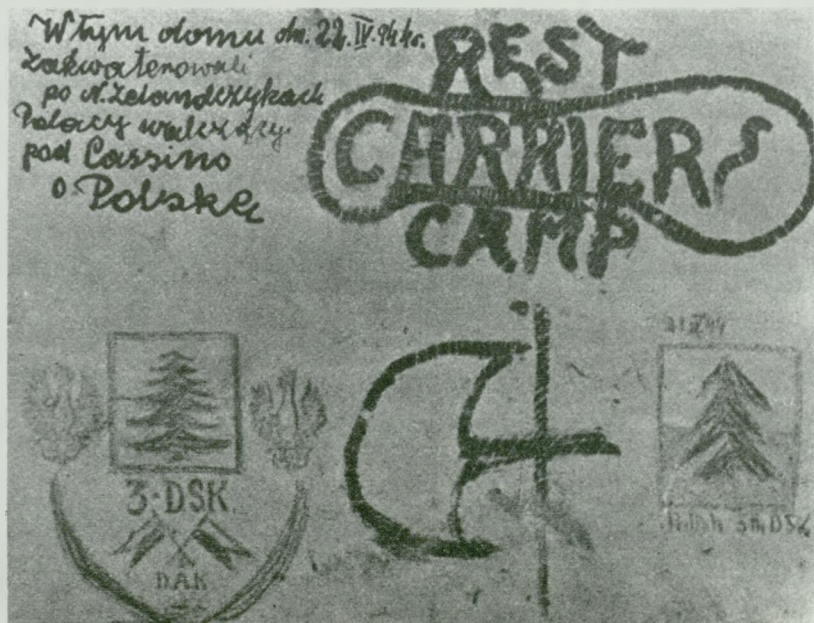 W tym domu dn. 22.IV.944r.
zakwaterowali
po N. Zelandczykach
Polacy walczący
pod Cassino
o Polskę
REST
CARRIERS
CAMP
3. DSK.
D.A.K
DSK